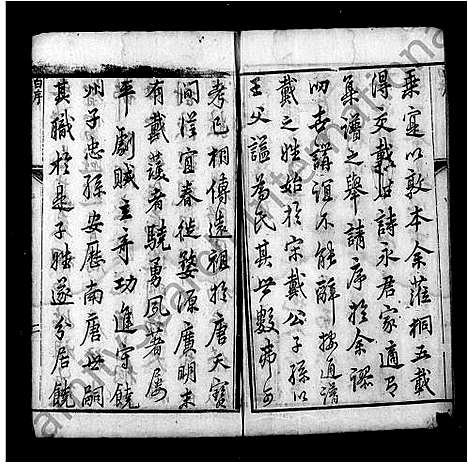 乘寔以敦本余蒞桐五載
得交戴世詩永君家適有
葺譜之舉請序於余謬
叨世講誼不能辭按通譜
戴之姓始於宋戴公子孫以
王父諡為氏其世數弗可
考已相傳遠祖於唐天寶
間從宜春徙婺源廣明末
有戴護者驍勇夙著屢
平劇賊主帥功進守饒
州子忠孫安歷南唐世嗣
其職於是子姓遂分居饒
自序